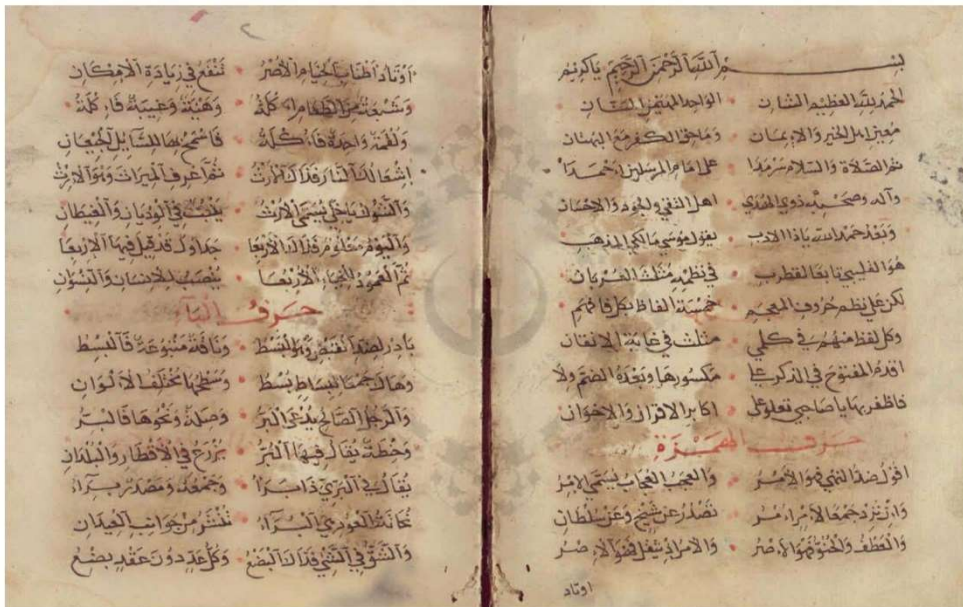 بسم الله الرحمن الرحيم يا كريم
الحمد لله العظيم الشان الواحد المهيمن المنان
معين اهل الخير والايمان وماحق الكفر مع البهتان
ثم الصلاة والسلام سرمدا على امام المرسلين احمدا
وآله وصحبه ذوي الهدى اهل التقى والجود والاحسان
وبعد حمد الله يا ذا الادب يقول موسى مالكي المذهب
هو القليبي تابعا لقطرب في نظمه مثلث
لكن على نظم حروف المعجم خمسة الفاظ بكل فافهم
وكل لفظ منهم في كلمي مثلث في غاية الاتقان
اقدم المفتوح في الذكر على مكسورها وبعده الضم ولا
فاظفر بها يا صاحبي تعلو على اكابر الاقران والاخوان
حرف الهمزة
اقول ضد النهي فهو الامر والعجب العجاب يسمى الامر
وان ترد جمعا لامراء مر تصدر عن شيخ وعن سلطان
والعطف والحنو فهو الاصر والامر اذ يثقل فهو الاصر
اوتاد
٢
اوتاد اطناب الخيام الأصر تنفع في زيادة الامكان
وشبعة من الطعام اكلة وهيئة وغيبة فاكلة
ولقمة واحدة فاكلة فاسمح بها للسايل الجيعان
اشعالك النار فذاك الارث ثم اعرف الميراث وهو الارث
والنبت يسمى الارث ينبت في الوديان والغيطان
واليوم معلوم فذاك الأربعا جداول قد قيل فيها الاربعا
ثم العمود للخباء الأربعا ينصب للانسان والنسوان
حرف الباء
بادر لضد القبض وهو البسط وناقة متبوعة فالبسط
وهاك جمعا لبساط بسط وسطحها مختلف الالوان
والرجل الصالح يدعى البر وصلة ونحوها فالبر
وحنطة يقال فيها البر يزرع في الأقطار والبلدان
يقال في البري ذا براء وجمعه ومصدر براء
نحاتة العود هي البراء تنثر من جوانب العيدان
والشق في الشيء فذاك البضع وكل عدد دون عقد بضع